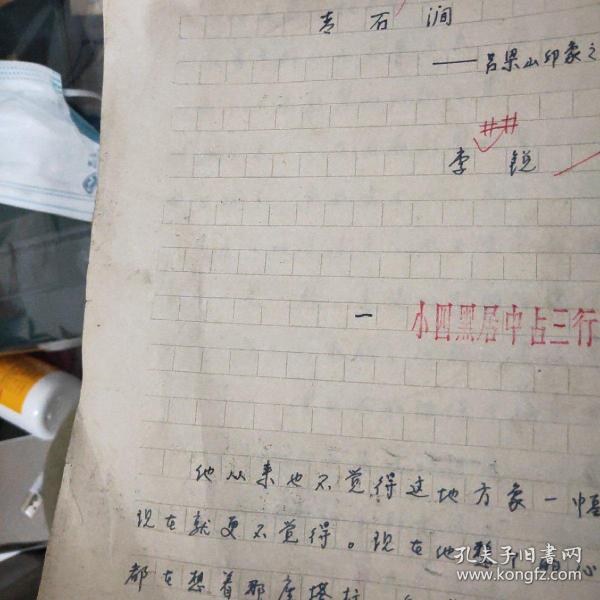 青石涧
——吕梁山印象之
李锐
一 小四黑居中占三行
他从来也不觉得这地方象一幅
现在就更不觉得。现在他整个的心
都在想着那座塔
孔夫子旧书网
www.kongfz.com